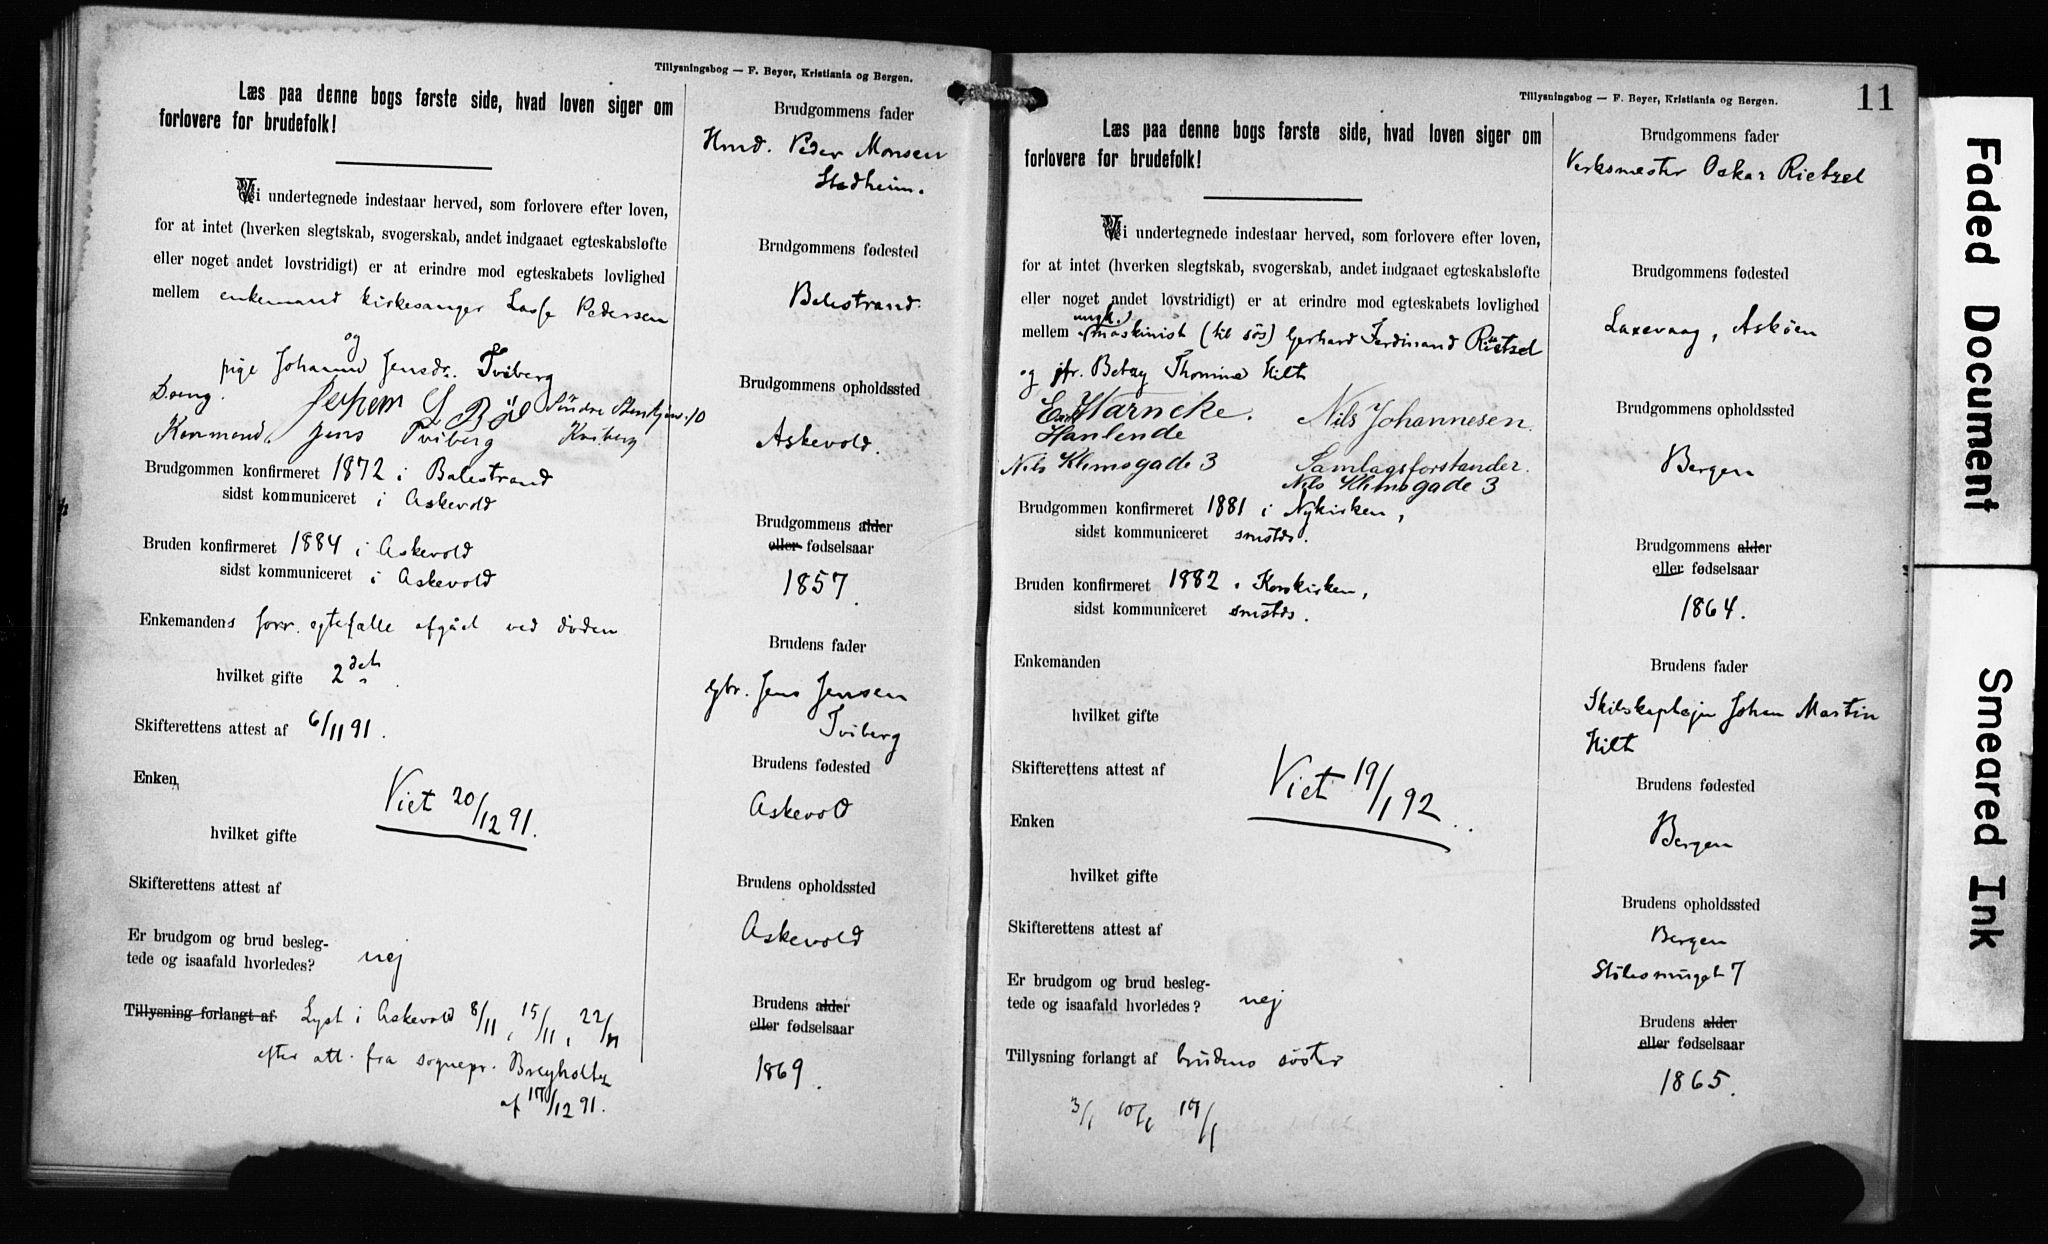 Tillysningsbog — F. Beyer, Kristiania og Bergen.
Læs paa denne bogs første side, hvad loven siger om
forlovere for brudefolk!
Vi undertegnede indestaar herved, som forlovere efter loven,
for at intet (hverken slegtskab, svogerskab, andet indgaaet egteskabsløfte
eller noget andet lovstridigt) er at erindre mod egteskabets lovlighed
mellem enkemand kirkesanger Lasse Pedersen
og
pige Johanna Jensdr. Tviberg
Tviberg
Brudgommen konfirmeret 1872 i Balestrand
sidst kommuniceret i Askevold
Bruden konfirmeret 1884 i Askevold
sidst kommuniceret i Askevold
Enkemandens forr. egtefælle afgået ved døden
hvilket gifte 2det
Skifterettens attest af 6/11 91.
Enken
Viet 20/12 91.
hvilket gifte
Skifterettens attest af
Er brudgom og brud besleg-
tede og isaafald hvorledes? nej
Tillysning forlangt af Lyst i Askevold 8/11, 15/11, 22/11
efter att. fra sognepr. Breyholtz
af 17/12 91.
Brudgommens fader
Peder Monsen
Stadheim.
Brudgommens fødested
Balestrand.
Brudgommens opholdssted
Askevold.
Brudgommens alder
eller fødselsaar
1857.
Brudens fader
gbr. Jens Jensen
Tviberg
Brudens fødested
Askevold
Brudens opholdssted
Askevold
Brudens alder
eller fødselsaar
1869.
Tillysningsbog — F. Beyer, Kristiania og Bergen.
11
Læs paa denne bogs første side, hvad loven siger om
forlovere for brudefolk!
Vi undertegnede indestaar herved, som forlovere efter loven,
for at intet (hverken slegtskab, svogerskab, andet indgaaet egteskabsløfte
eller noget andet lovstridigt) er at erindre mod egteskabets lovlighed
ungk.
mellem maskinist (til søs) Gerhard Ferdinand Rietzel
og jfr. Betzy Thomine Hilt
Warncke. Nils Johannesen.
Hanlende
Nils Klimsgade 3 Samlagsforstander.
Nils Klimsgade 3
Brudgommen konfirmeret 1881 i Nykirken,
sidst kommuniceret smstds.
Bruden konfirmeret 1882 i Korskirken,
sidst kommuniceret smstds.
Enkemanden
hvilket gifte
Skifterettens attest af
Viet 19/1 92.
Enken
hvilket gifte
Skifterettens attest af
Er brudgom og brud besleg-
tede og isaafald hvorledes? nej
Tillysning forlangt af brudens søster
3/1 10/1 17/1
Brudgommens fader
Verksmester Oskar Rietzel
Brudgommens fødested
Laxevaag, Askøen
Brudgommens opholdssted
Bergen
Brudgommens alder
eller fødselsaar
1864.
Brudens fader
Johan Martin
Hilt
Brudens fødested
Bergen
Brudens opholdssted
Bergen
Stølesmuget 7
Brudens alder
eller fødselsaar
1865.
Faded Document
Smeared Ink